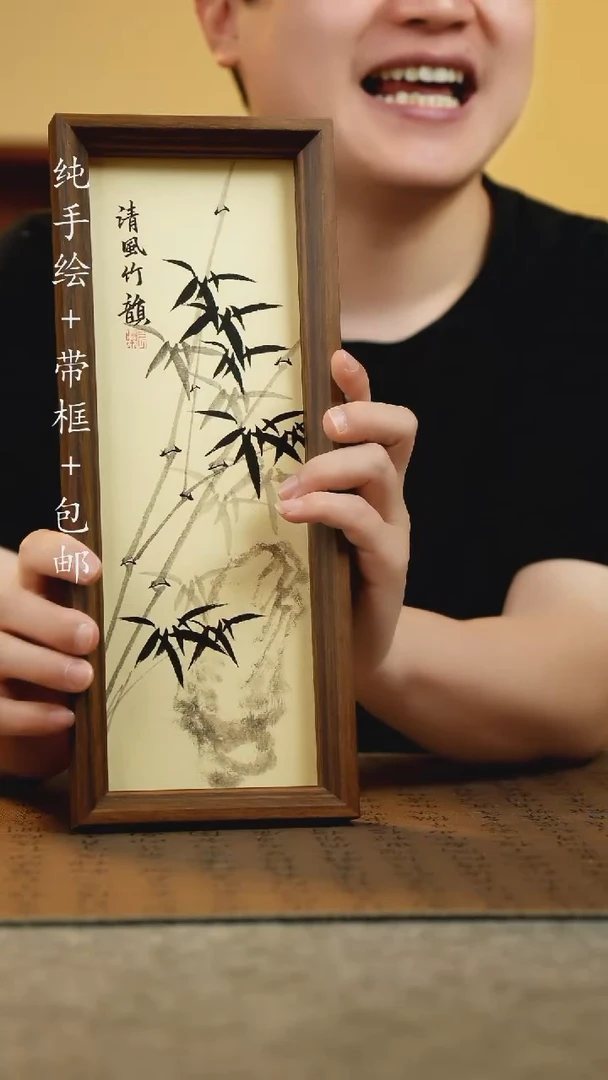 纯手绘+带框+包邮
清風竹韻